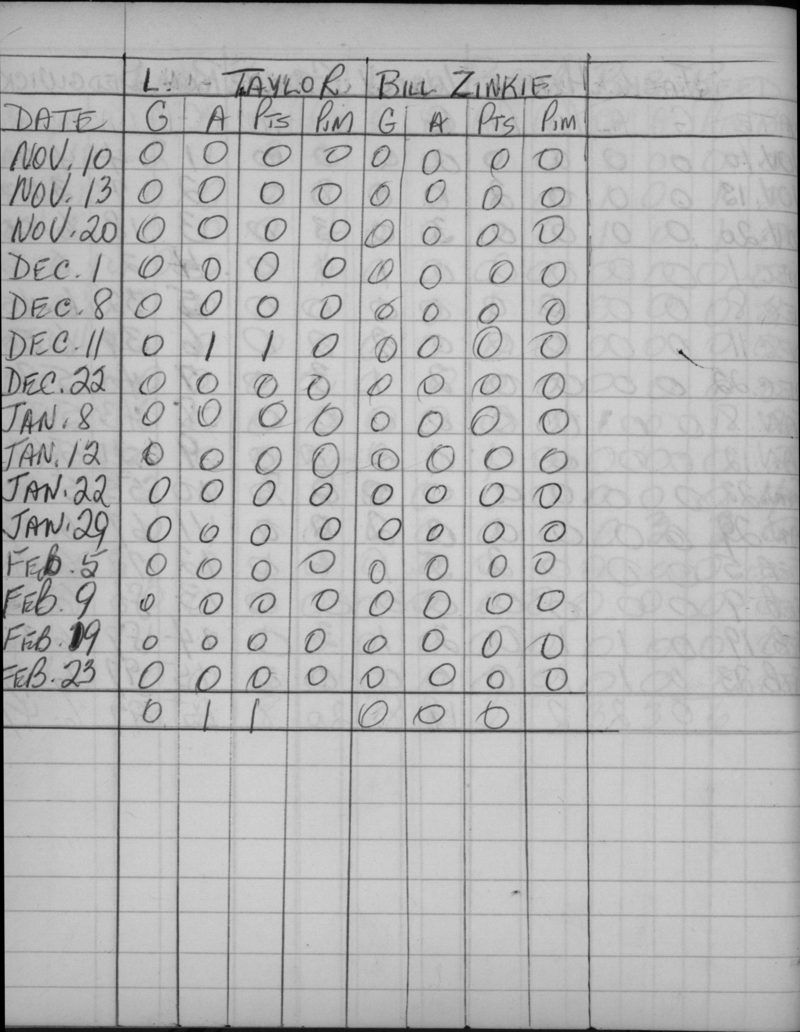 L. TAYLOR BILL ZINKIE
DATE G A PTS PIM G A PTS PIM
NOV. 10 0 0 0 0 0 0 0 0
NOV. 13 0 0 0 0 0 0 0 0
NOV. 20 0 0 0 0 0 0 0 0
DEC. 1 0 0 0 0 0 0 0 0
DEC. 8 0 0 0 0 0 0 0 0
DEC. 11 0 1 1 0 0 0 0 0
DEC. 22 0 0 0 0 0 0 0 0
JAN. 8 0 0 0 0 0 0 0 0
JAN. 12 0 0 0 0 0 0 0 0
JAN. 22 0 0 0 0 0 0 0 0
JAN. 29 0 0 0 0 0 0 0 0
FEB. 5 0 0 0 0 0 0 0 0
FEB. 9 0 0 0 0 0 0 0 0
FEB. 19 0 0 0 0 0 0 0 0
FEB. 23 0 0 0 0 0 0 0 0
0 1 1 0 0 0